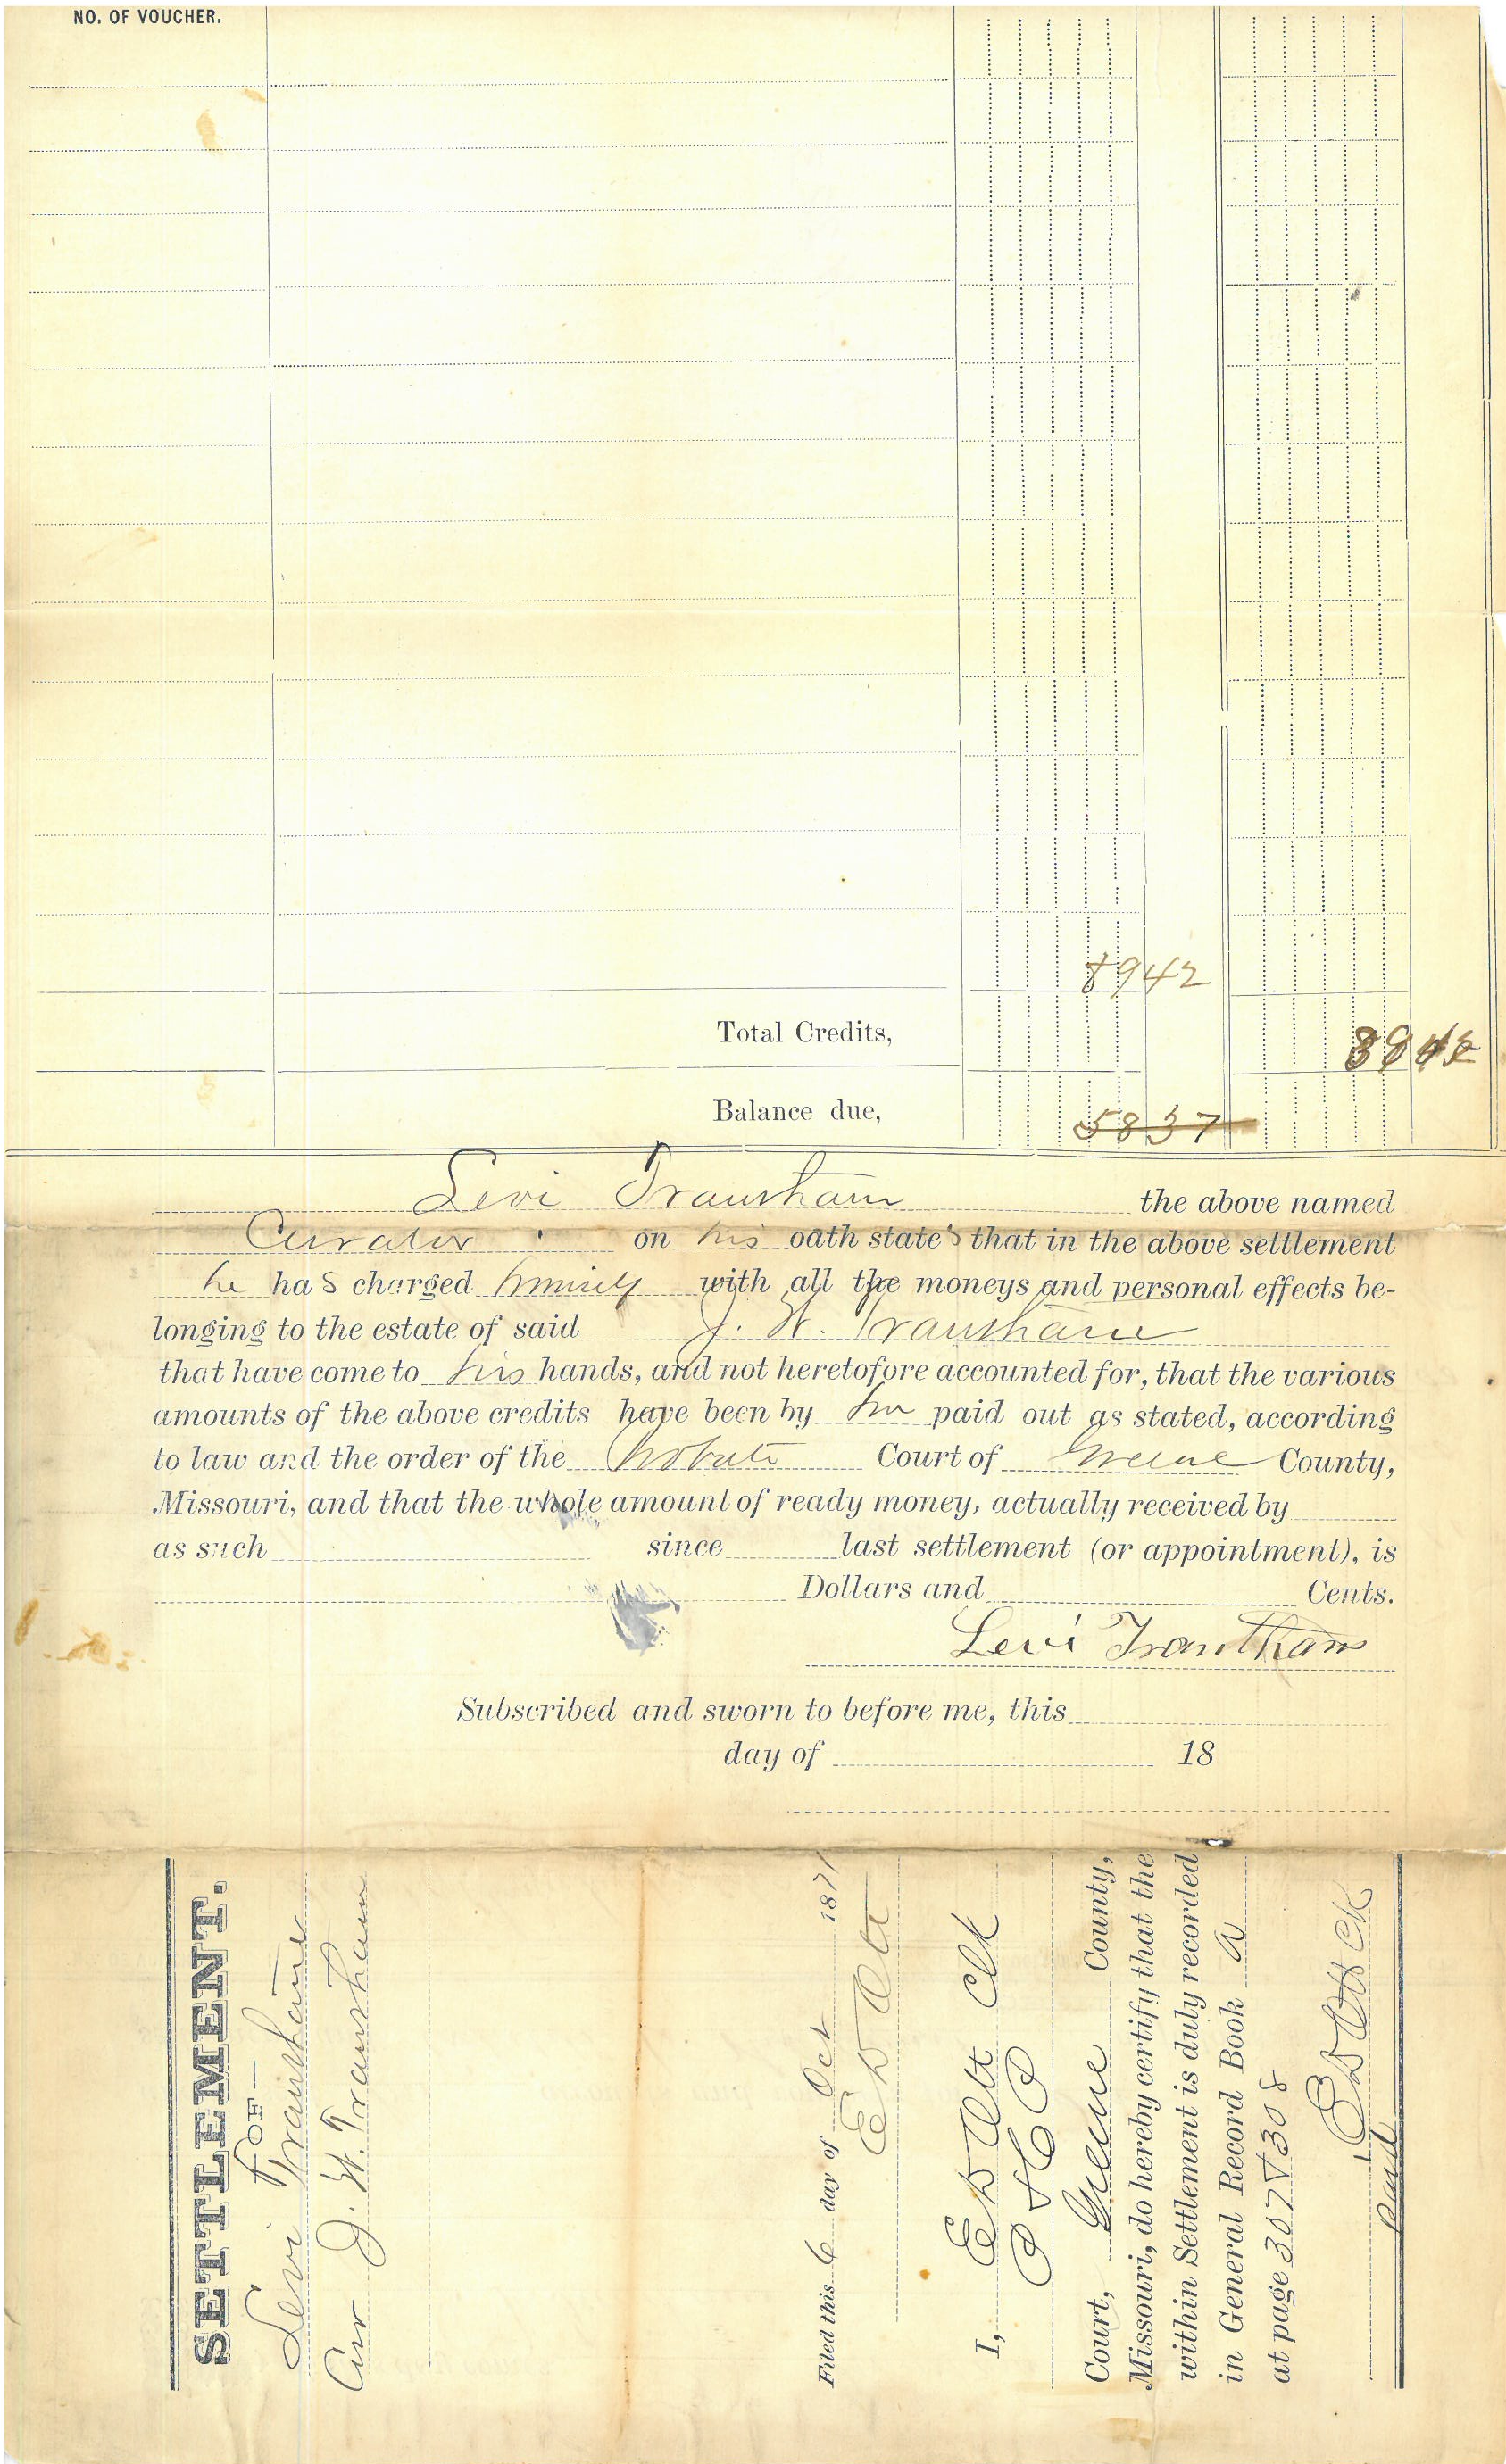 NO. OF VOUCHER.
8942
Total Credits,
8942
Balance due,
5837
Levi Trantham the above named
Curator on his oath states that in the above settlement
he has charged himself with all the moneys and personal effects be-
longing to the estate of said J. W. Trantham
that have come to his hands, and not heretofore accounted for, that the various
amounts of the above credits have been by him paid out as stated, according
to law and the order of the Probate Court of Greene County,
Missouri, and that the whole amount of ready money, actually received by
as such since last settlement (or appointment), is
Dollars and Cents.
Levi Trantham
Subscribed and sworn to before me, this
day of 18
SETTLEMENT.
OF—
Levi Trantham
Cur J. W. Trantham
Filed this 6 day of Oct 1871
E D Ott
I, E D Ott Clk
Court, Greene County,
Missouri, do hereby certify that the
within Settlement is duly recorded
in General Record Book A
at page 307 & 308
E D Ott Clk
Paid